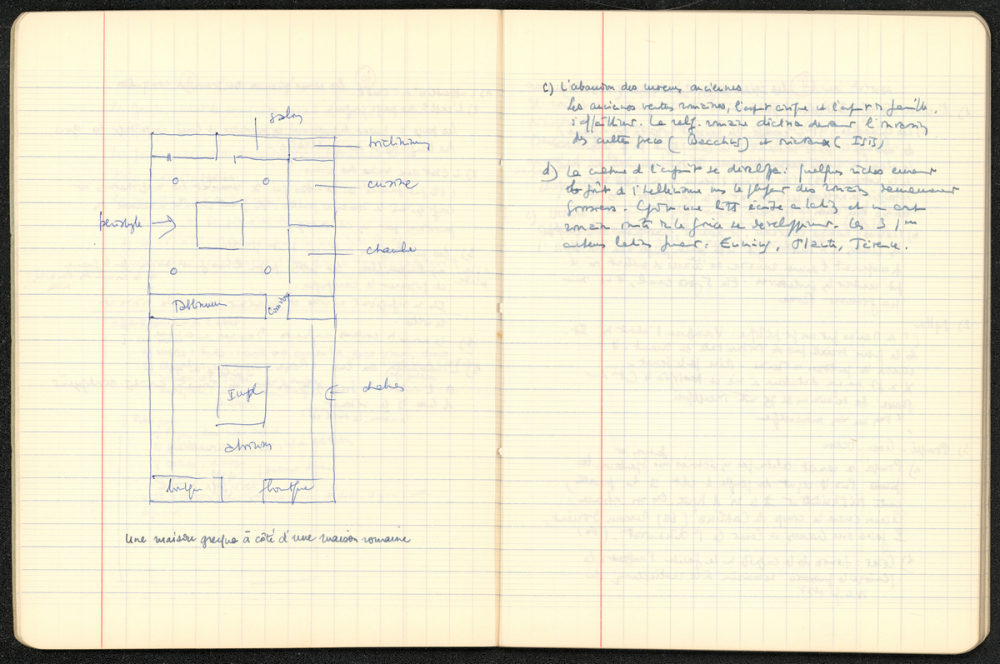 salon
triclinium
cuisine
péristyle
chambre
Tablinum
Couloir
Impl
chambres
atrium
boutique
boutique
Une maison grecque à côté d'une maison romaine
c) L'abandon des moeurs anciennes
Les anciennes vertus romaines, l'esprit civique et l'esprit de famille
s'affaiblirent. La relig. romaine déclina devant l'invasion
des cultes grecs (Bacchus) et orientaux (ISIS)
d) La culture de l'esprit se développe : quelques riches eurent
le goût de l'hellénisme mais la plupart des romains demeurèrent
grossiers. Cpdt une litt écrite en latin et un art
romain imité de la Grèce se développèrent. Les 3 1ers
auteurs latins furent : Ennius, Plaute, Térence.